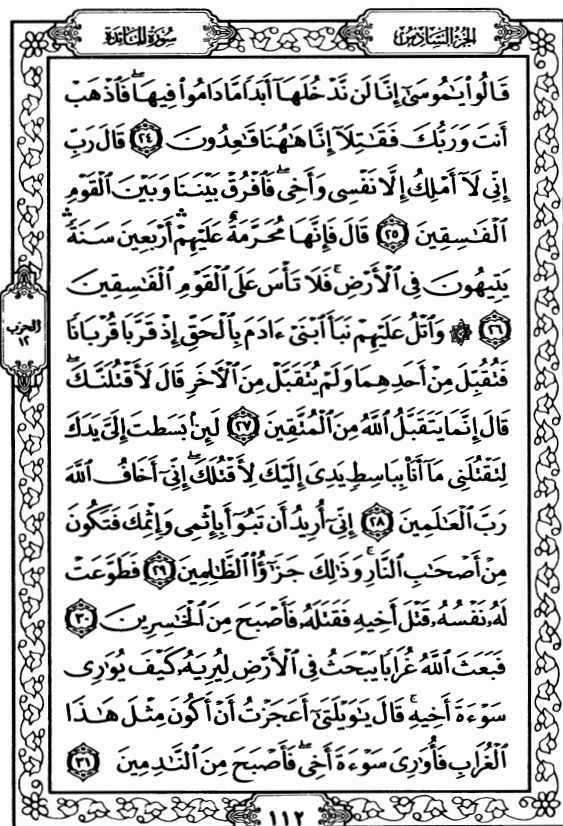 الجزء السادس
سورة المائدة
قَالُوا۟ يَـٰمُوسَىٰٓ إِنَّا لَن نَّدْخُلَهَآ أَبَدًا مَّا دَامُوا۟ فِيهَا ۖ فَٱذْهَبْ
أَنتَ وَرَبُّكَ فَقَـٰتِلَآ إِنَّا هَـٰهُنَا قَـٰعِدُونَ ٢٤ قَالَ رَبِّ
إِنِّى لَآ أَمْلِكُ إِلَّا نَفْسِى وَأَخِى ۖ فَٱفْرُقْ بَيْنَنَا وَبَيْنَ ٱلْقَوْمِ
ٱلْفَـٰسِقِينَ ٢٥ قَالَ فَإِنَّهَا مُحَرَّمَةٌ ۛ عَلَيْهِمْ ۛ أَرْبَعِينَ سَنَةً ۛ
يَتِيهُونَ فِى ٱلْأَرْضِ ۚ فَلَا تَأْسَ عَلَى ٱلْقَوْمِ ٱلْفَـٰسِقِينَ
٢٦ ۞ وَٱتْلُ عَلَيْهِمْ نَبَأَ ٱبْنَىْ ءَادَمَ بِٱلْحَقِّ إِذْ قَرَّبَا قُرْبَانًا
فَتُقُبِّلَ مِنْ أَحَدِهِمَا وَلَمْ يُتَقَبَّلْ مِنَ ٱلْأَخَرِ قَالَ لَأَقْتُلَنَّكَ ۖ
قَالَ إِنَّمَا يَتَقَبَّلُ ٱللَّهُ مِنَ ٱلْمُتَّقِينَ ٢٧ لَئِنۢ بَسَطتَ إِلَىَّ يَدَكَ
لِتَقْتُلَنِى مَآ أَنَا۠ بِبَاسِطٍ يَدِىَ إِلَيْكَ لِأَقْتُلَكَ ۖ إِنِّىٓ أَخَافُ ٱللَّهَ
رَبَّ ٱلْعَـٰلَمِينَ ٢٨ إِنِّىٓ أُرِيدُ أَن تَبُوٓأَ بِإِثْمِى وَإِثْمِكَ فَتَكُونَ
مِنْ أَصْحَـٰبِ ٱلنَّارِ ۚ وَذَٰلِكَ جَزَٰٓؤُا۟ ٱلظَّـٰلِمِينَ ٢٩ فَطَوَّعَتْ
لَهُۥ نَفْسُهُۥ قَتْلَ أَخِيهِ فَقَتَلَهُۥ فَأَصْبَحَ مِنَ ٱلْخَـٰسِرِينَ ٣٠
فَبَعَثَ ٱللَّهُ غُرَابًا يَبْحَثُ فِى ٱلْأَرْضِ لِيُرِيَهُۥ كَيْفَ يُوَٰرِى
سَوْءَةَ أَخِيهِ ۚ قَالَ يَـٰوَيْلَتَىٰٓ أَعَجَزْتُ أَنْ أَكُونَ مِثْلَ هَـٰذَا
ٱلْغُرَابِ فَأُوَٰرِىَ سَوْءَةَ أَخِى ۖ فَأَصْبَحَ مِنَ ٱلنَّـٰدِمِينَ ٣١
الحزب
١٢
١١٢